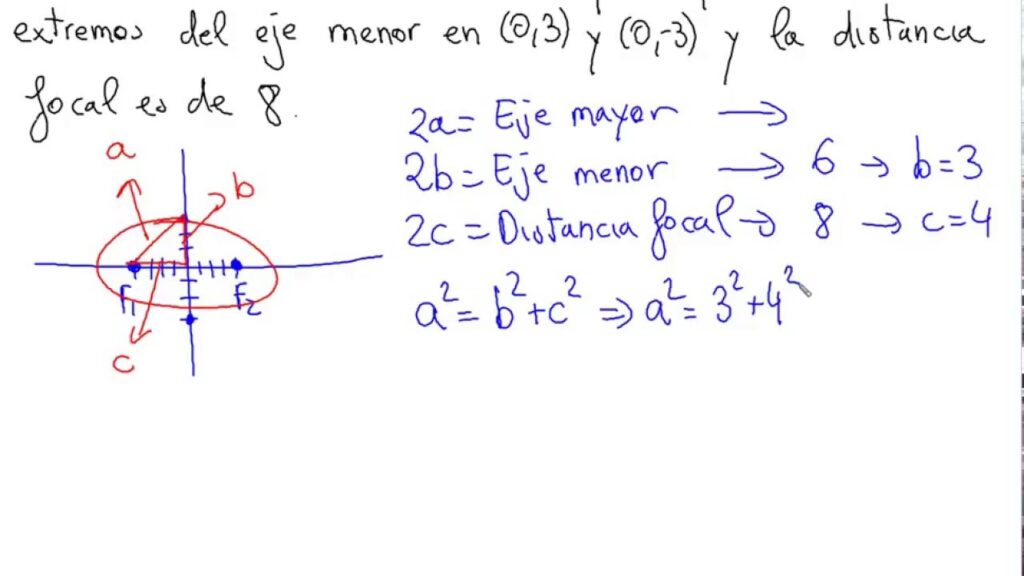 extremos del eje menor en (0,3) y (0,-3) y la distancia
focal es de 8.
2a = Eje mayor →
2b = Eje menor → 6 → b = 3
2c = Distancia focal → 8 → c = 4
a² = b² + c² ⇒ a² = 3² + 4²
a
b
f₁ f₂
c